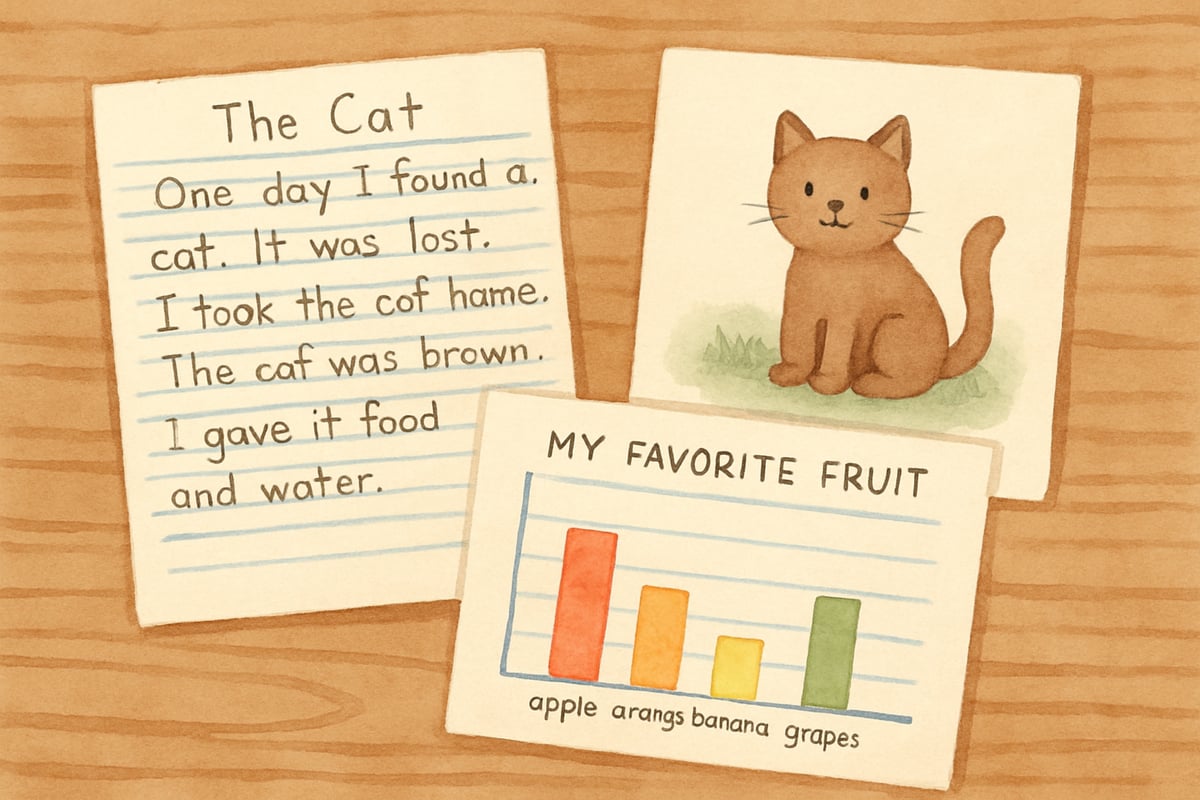 The Cat
One day I found a.
cat. It was lost.
I took the cof hame.
The caf was brown.
I gave it food
and water.
MY FAVORITE FRUIT
apple arangs banana grapes